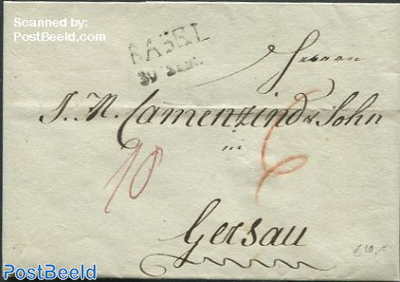 Scanned by:
PostBeeld.com
BASEL
30 Sept.
Herren
J. M. Camenzind & Sohn
in
10
6
Gersau
€10,-
PostBeeld